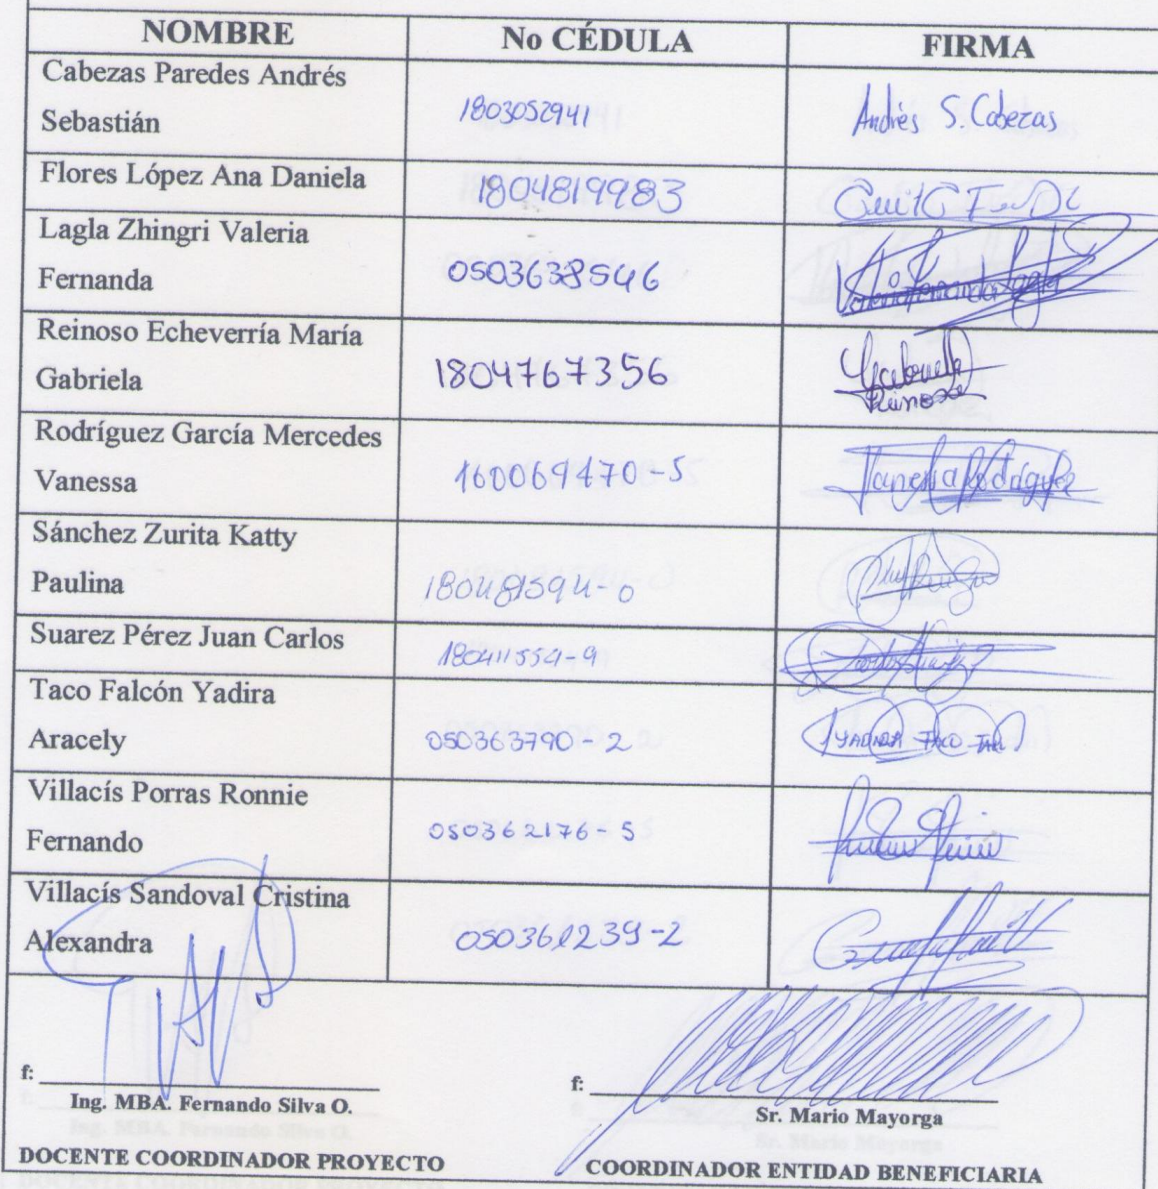 NOMBRE No CÉDULA FIRMA
Cabezas Paredes Andrés
Sebastián 1803052941 Andrés S. Cabezas
Flores López Ana Daniela 1804819983
Lagla Zhingri Valeria
Fernanda 0503638546 Valeria Fernanda Lagla
Reinoso Echeverría María
Gabriela 1804767356 Gabriella
Reinoso
Rodríguez García Mercedes
Vanessa 160069470-5 Vanessa Rodríguez
Sánchez Zurita Katty
Paulina 180481594-0
Suarez Pérez Juan Carlos 180411554-9
Taco Falcón Yadira
Aracely 050363790-2 YADIRA TACO
Villacís Porras Ronnie
Fernando 050362176-5
Villacís Sandoval Cristina
Alexandra 050361239-2
f: f:
Ing. MBA. Fernando Silva O. Sr. Mario Mayorga
DOCENTE COORDINADOR PROYECTO COORDINADOR ENTIDAD BENEFICIARIA